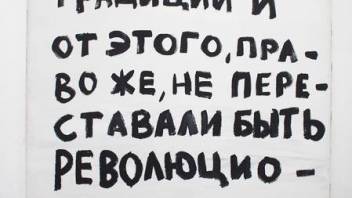 ТРАДИЦИИ И
ОТ ЭТОГО, ПРА-
ВО ЖЕ, НЕ ПЕРЕ-
СТАВАЛИ БЫТЬ
РЕВОЛЮЦИО-